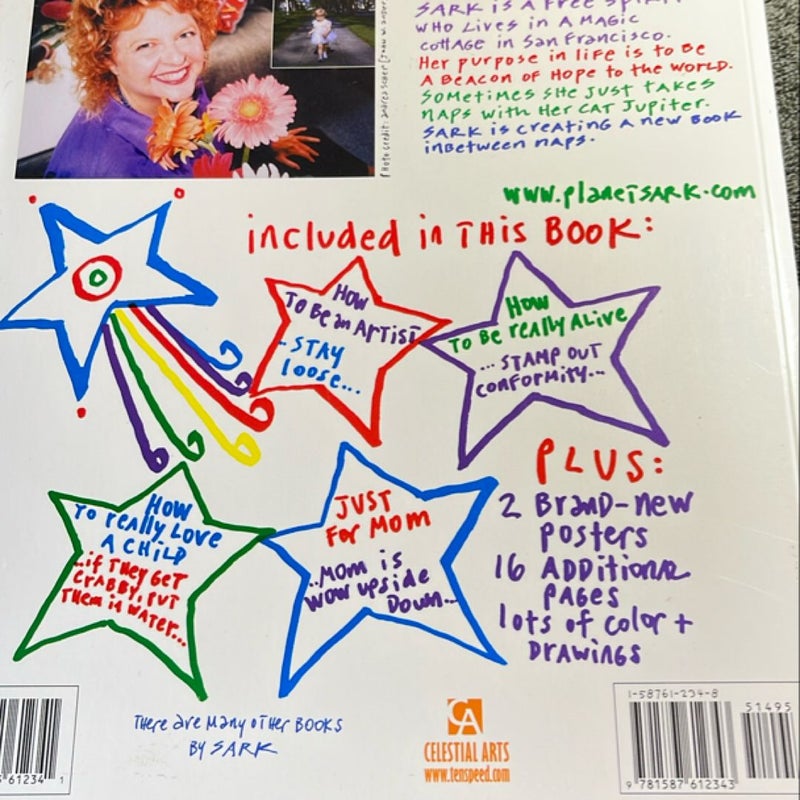 SARK is a free spirit
who lives in a magic
cottage in San Francisco.
Her purpose in life is to be
a beacon of hope to the world.
Sometimes she just takes
naps with her cat Jupiter.
SARK is creating a new book
inbetween naps.
www.planetsark.com
included in this book:
How
to be an artist
-stay
loose...
How
to be really alive
...stamp out
conformity...
How
to really love
a child
...if they get
crabby, put
them in water...
Just
for Mom
...Mom is
wow upside
down...
PLUS:
2 brand-new
posters
16 additional
pages
lots of color +
drawings
There are many other books
by SARK
CA
CELESTIAL ARTS
www.tenspeed.com
61234 1
1-58761-234-8
51495
9 781587 612343